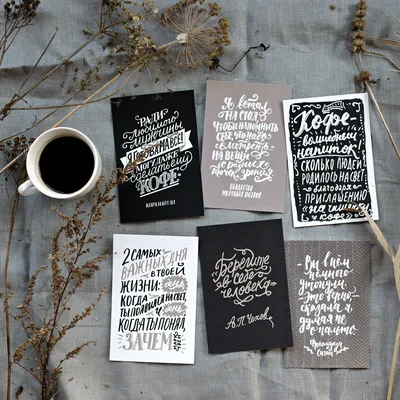 РАДИ
любимого
мужчины
Я ГОТОВА НА ВСЁ!
МОГУ ДАЖЕ
сделать ему
КОФЕ
Я ВСТАЛ
НА СТОЛ
ЧТОБЫ НАПОМНИТЬ
СЕБЕ, ЧТО НАДО
смотреть
НА ВЕЩИ
с разных
точек зрения
ОБЩЕСТВО
МЕРТВЫХ ПОЭТОВ
Кофе
волшебный
напиток!
СКОЛЬКО ЛЮДЕЙ
РОДИЛОСЬ НА СВЕТ
благодаря
ПРИГЛАШЕНИЮ
«на чашку
кофе»
2 САМЫХ
ВАЖНЫХ ДНЯ
В ТВОЕЙ
ЖИЗНИ: день,
КОГДА
ТЫ ПОЯВИЛСЯ НА СВЕТ,
и день,
КОГДА ТЫ ПОНЯЛ,
ЗАЧЕМ
Берегите
в себе
человека
А.П. Чехов
Вы в нём
немного
утонули.
Это вечно
сказала я,
думая не
о пальто.
Франсуаза
Саган